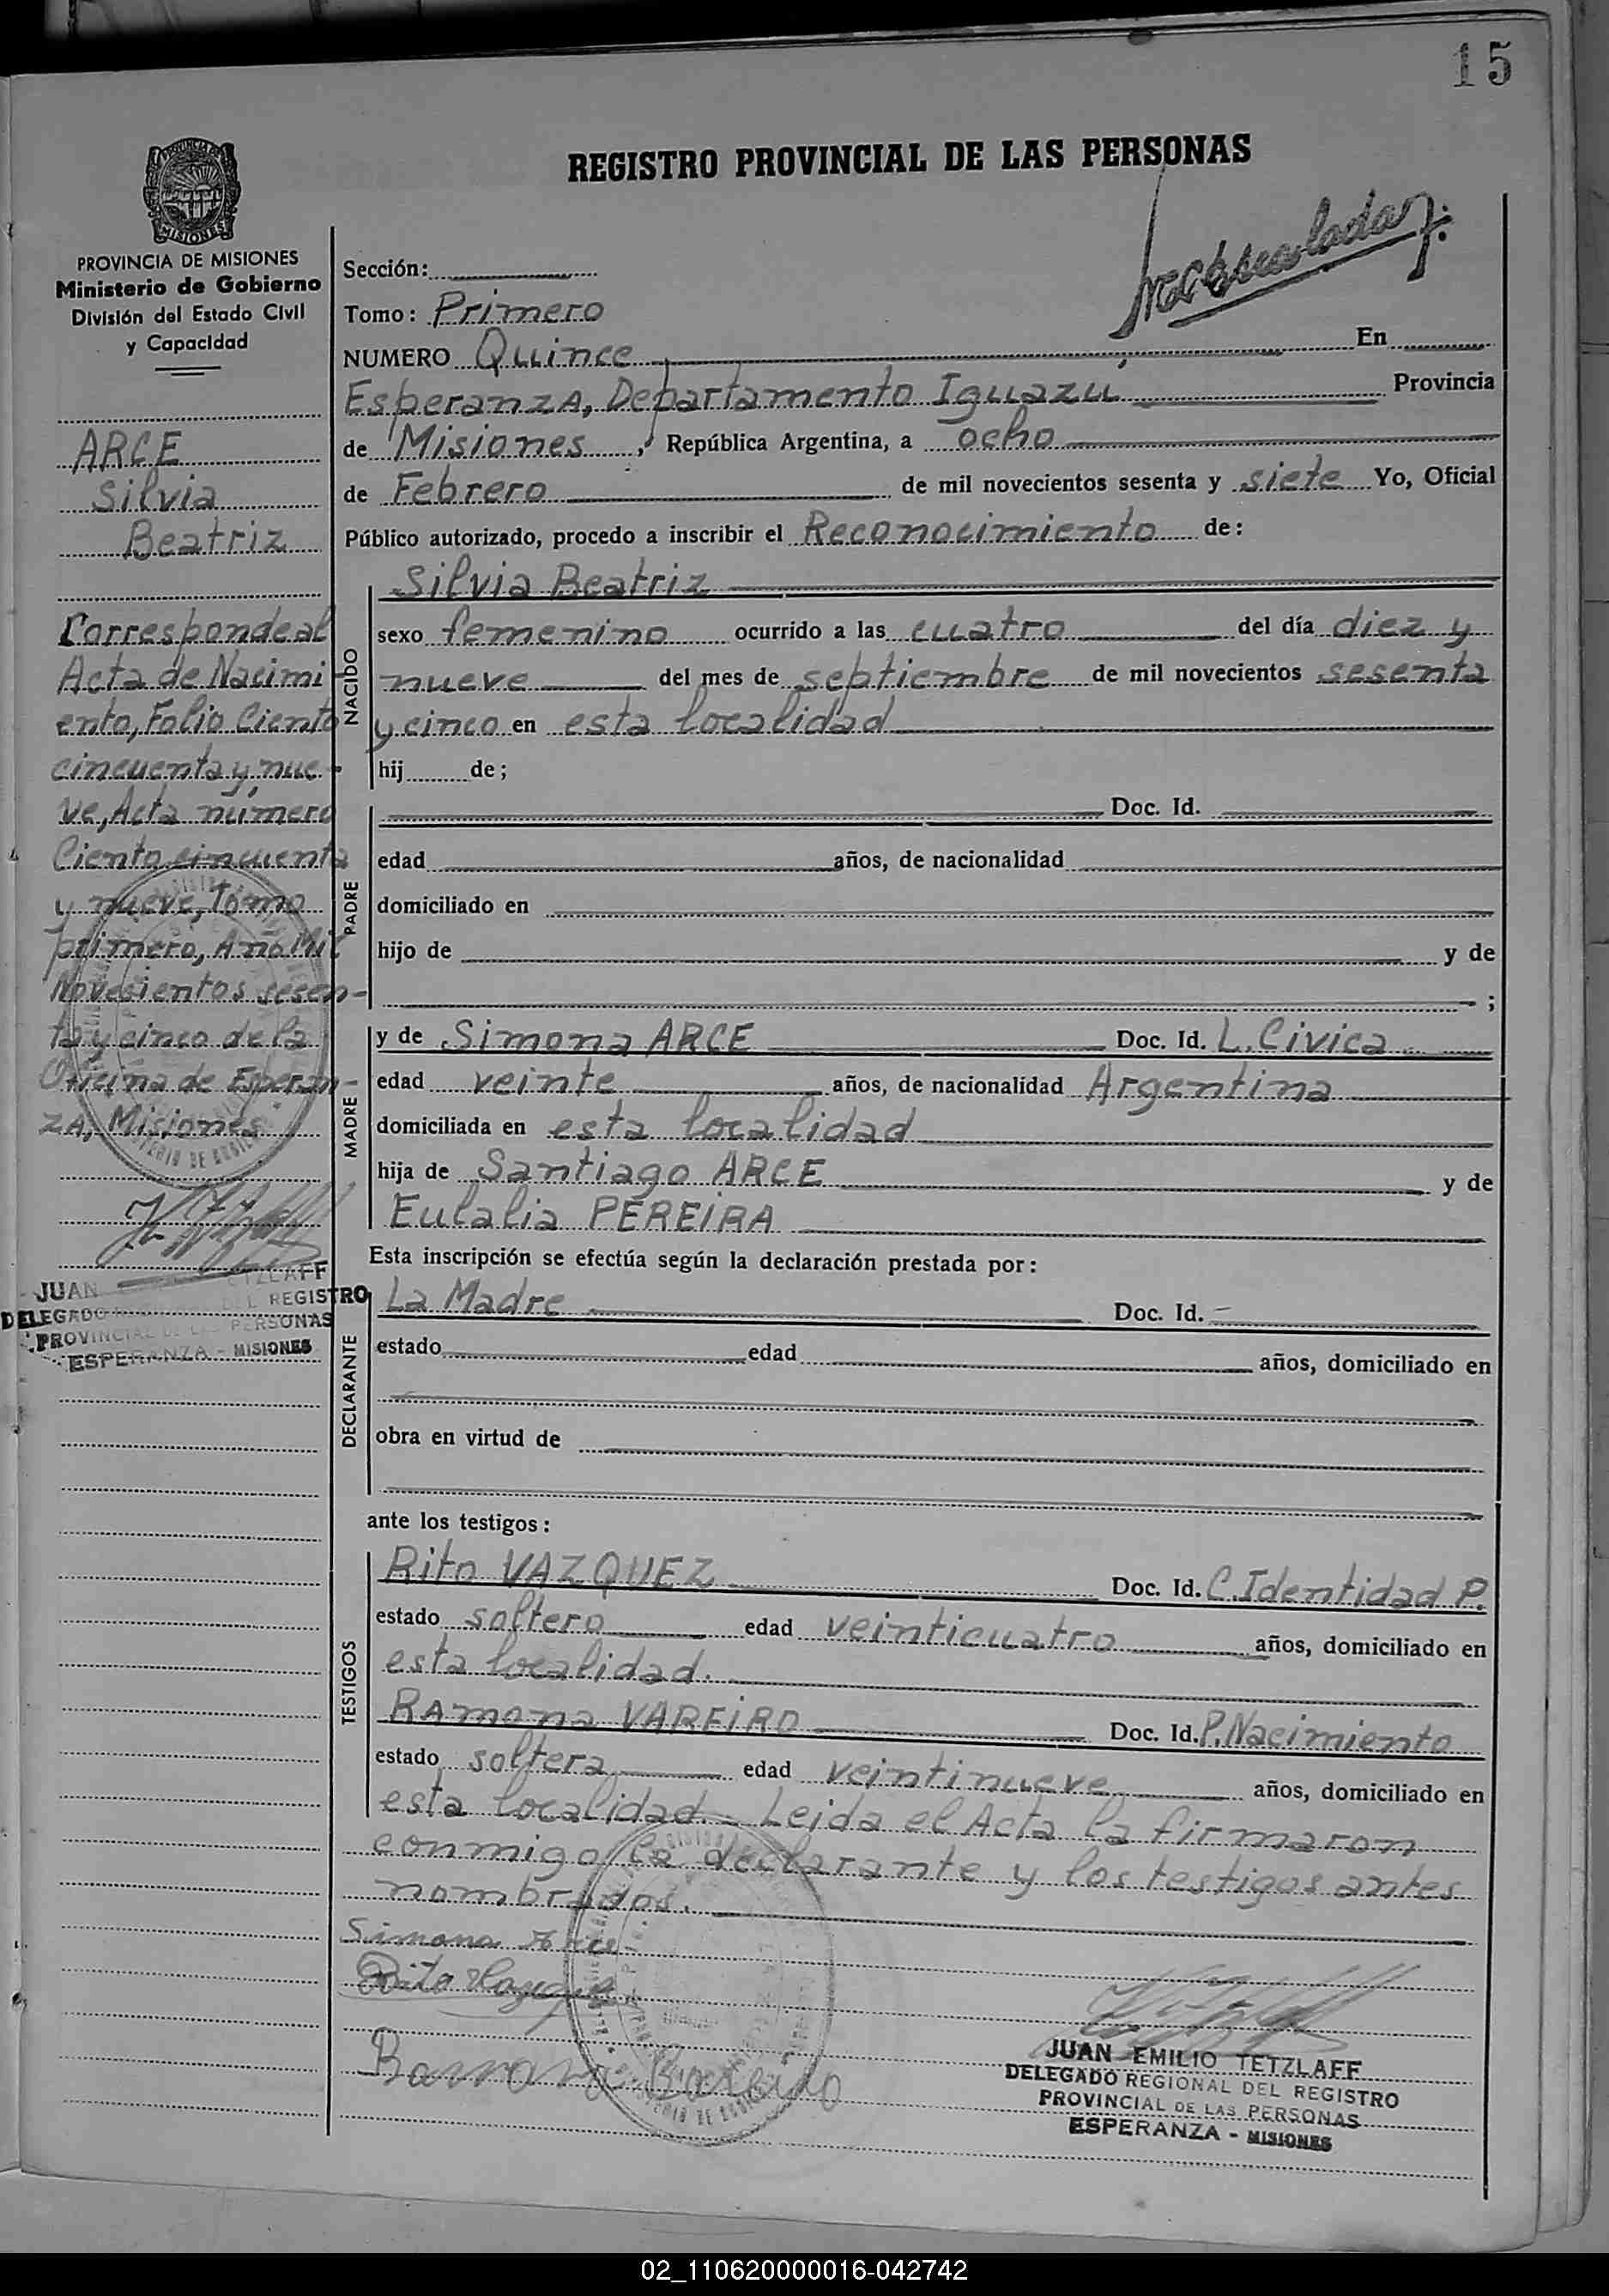 15
REGISTRO PROVINCIAL DE LAS PERSONAS
PROVINCIA DE MISIONES
MISIONES
PROVINCIA DE MISIONES
Ministerio de Gobierno
División del Estado Civil
y Capacidad
ARCE
Silvia
Beatriz
Corresponde al
Acta de Nacimi
ento, Folio Ciento
cincuenta y nue-
ve, Acta número
Ciento cincuenta
y nueve, Tomo
primero, Año Mil
Novecientos sesen-
ta y cinco de la
Oficina de Esperan-
za, Misiones
JUAN TETZLAFF
DELEGADO DEL REGISTRO
PROVINCIAL DE LAS PERSONAS
ESPERANZA - MISIONES
Sección:
Tomo: Primero
NUMERO Quince En
Esperanza, Departamento Iguazú Provincia
de Misiones, República Argentina, a ocho
de Febrero de mil novecientos sesenta y siete Yo, Oficial
Público autorizado, procedo a inscribir el Reconocimiento de:
NACIDO
Silvia Beatriz
sexo femenino ocurrido a las cuatro del día diez y
nueve del mes de septiembre de mil novecientos sesenta
y cinco en esta localidad
hij de;
PADRE
Doc. Id.
edad años, de nacionalidad
domiciliado en
hijo de y de
;
MADRE
y de Simona ARCE Doc. Id. L. Civica
edad veinte años, de nacionalidad Argentina
domiciliada en esta localidad
hija de Santiago ARCE y de
Eulalia PEREIRA
Esta inscripción se efectúa según la declaración prestada por:
DECLARANTE
La Madre Doc. Id. -
estado edad años, domiciliado en
obra en virtud de
ante los testigos:
TESTIGOS
Rito VAZQUEZ Doc. Id. C. Identidad P.
estado soltero edad veinticuatro años, domiciliado en
esta localidad.
RAmona VAREIRO Doc. Id. P. Nacimiento
estado soltera edad veintinueve años, domiciliado en
esta localidad.- Leida el Acta la firmaron
conmigo la declarante y los testigos antes
nombrados.
Simona Arce
Rito
JUAN EMILIO TETZLAFF
DELEGADO REGIONAL DEL REGISTRO
PROVINCIAL DE LAS PERSONAS
ESPERANZA - MISIONES
02_110620000016-042742